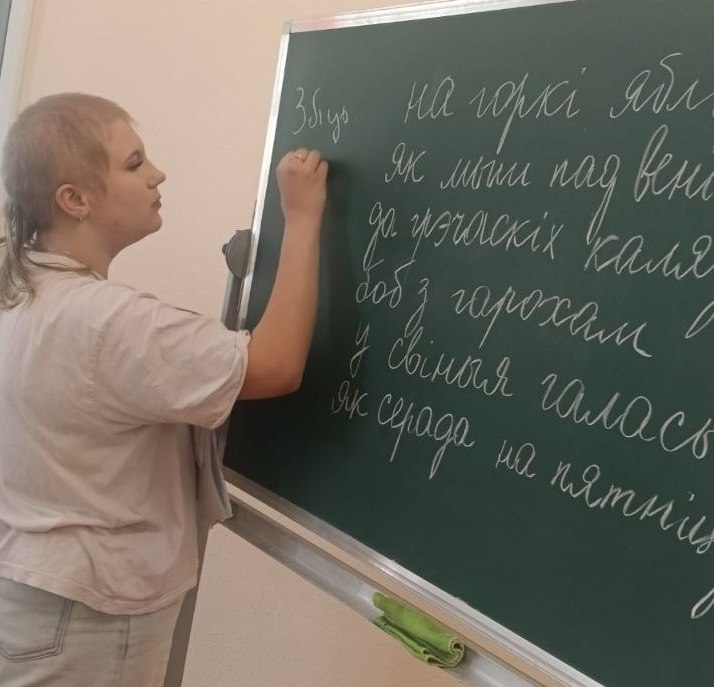 Збіць на горкі ябл
як мыш пад вені
да грэчаскіх каля
боб з гарохам
у свіныя галасы
як серада на пятніц